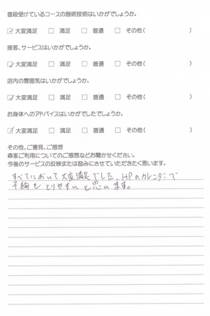 普段受けているコースの施術技術はいかがでしょうか。
☑ 大変満足 □ 満足 □ 普通 □ その他( )
接客、サービスはいかがでしょうか。
☑ 大変満足 □ 満足 □ 普通 □ その他( )
店内の雰囲気はいかがでしょうか。
☑ 大変満足 □ 満足 □ 普通 □ その他( )
お身体へのアドバイスはいかがでしたでしょうか。
☑ 大変満足 □ 満足 □ 普通 □ その他( )
その他、ご意見、ご感想
森客ご利用についてのご感想などお聞かせください。
今後のサービスの反映または励みにさせていただきたく思います。
すべてにおいて大変満足でした。HPのカレンダーで
予約もとりやすいと思います。